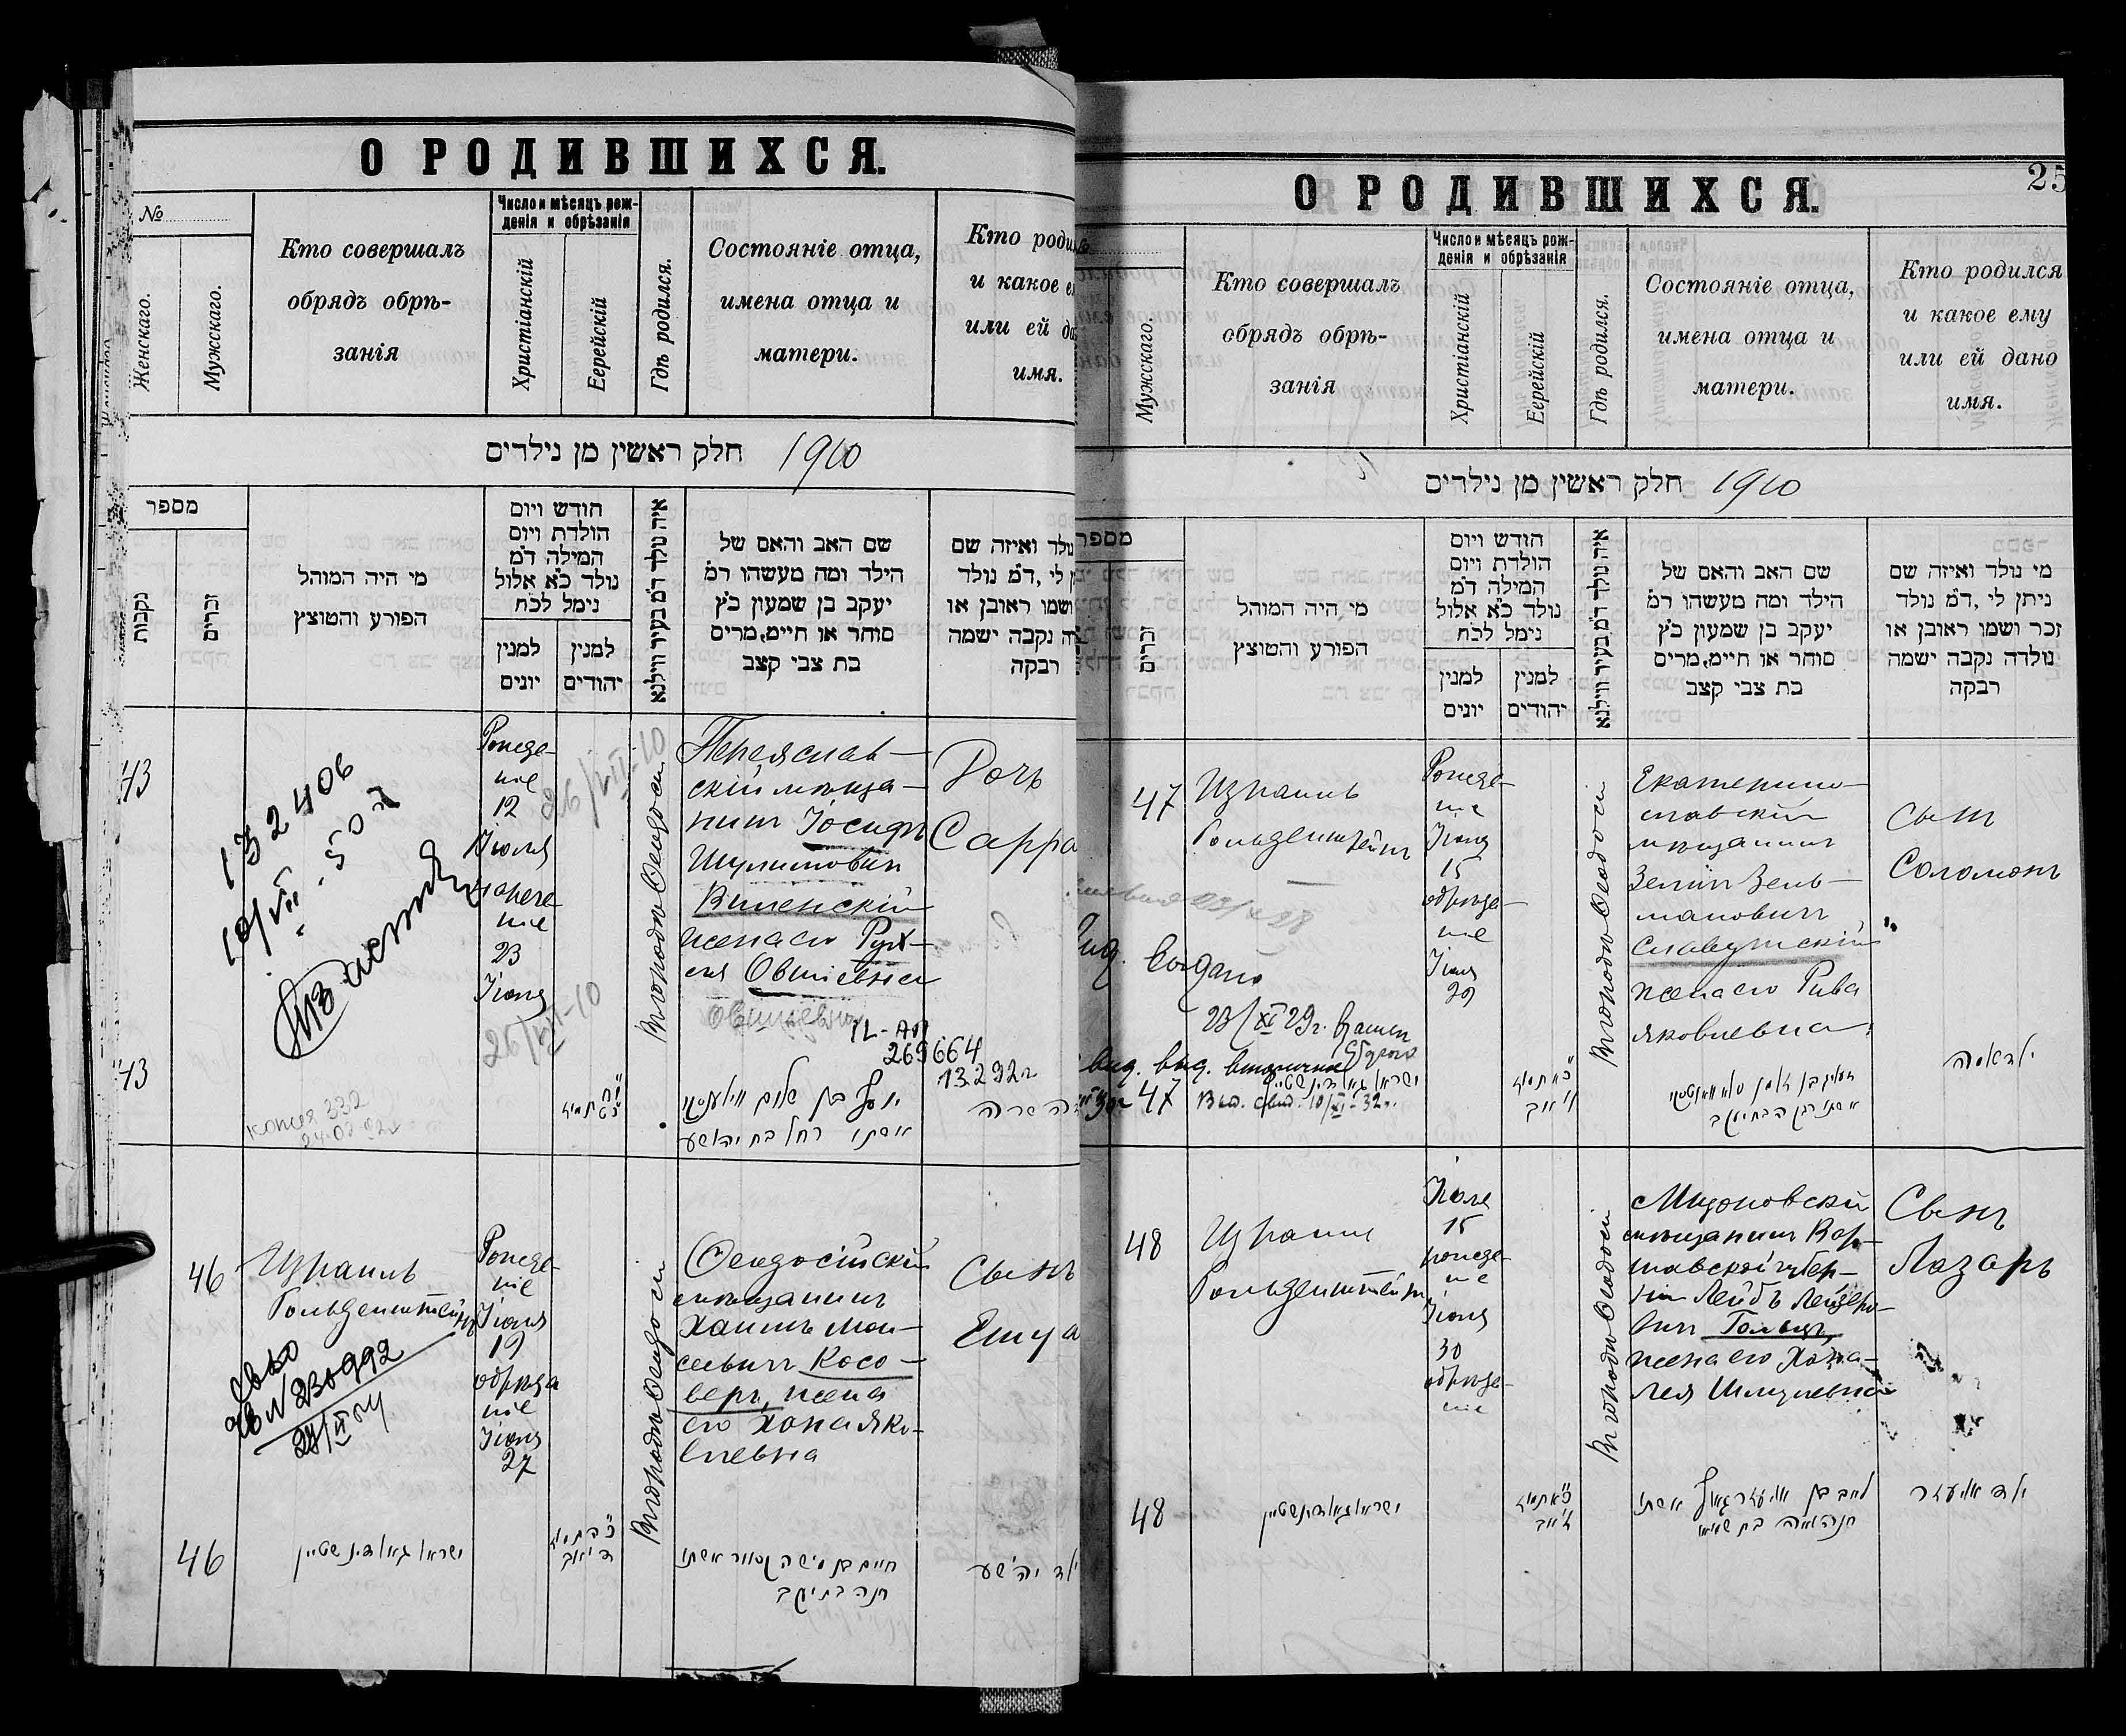 О РОДИВШИХСЯ.
№
Женскаго.
Мужскаго.
Кто совершалъ
обрядъ обрѣ-
занія
Число и мѣсяцъ рож-
денія и обрѣзанія
Христіанскій
Еерейскій
Гдѣ родился.
Состояніе отца,
имена отца и
матери.
Кто роди
и какое е
или ей да
имя.
חלק ראשין מן נילדים 1910
מספר
נקבות
זכרים
מי היה המוהל
הפורע והטוצץ
חודש ויום
הולדת ויום
המילה דמ
נולד כא אלול
נימל לכח
למנין
יונים
למנין
יהודים
איה נולד דמ בעיר ווילנא
שם האב והאם של
הילד ומה מעשהו רמ
יעקב בן שמעון כץ
סוחר או חיימ,מרים
בת צבי קצב
נולד ואיזה שם
ן לי ,דמ נולד
ושמו ראובן או
ה נקבה ישמה
רבקה
43
132406
10/VII - 50
Рожде-
ніе
12
Іюня
нарече-
ніе
23
Іюня
26/VII-10
Въ городѣ Ѳеодосіи
Переяслав-
скій мѣща-
нинъ Іосифъ
Шулимовичъ
Виленскій
жена его Рух-
ля Овшіевна
Дочь
Сарра
269664
13.2.92г
43
копия 332
יוסף בן שלום ווילענסקי
אשתו רחל בת יהושע
שרה
46
Израиль
Гольденштейнъ
Рожде-
ніе
Іюня
19
обрѣза
ніе
Іюня
27
Въ городѣ Ѳеодосіи
Ѳеодосійскій
мѣщанинъ
Хаимъ Мои-
сеевичъ Косо-
веръ, жена
его Хана Яко-
влевна
Сынъ
Ешуа
Св-во
№ 230992
46
ישראל גאלדינשטיין
חיים בן משה קסווער אשתו
חנה בת יעקב
ילד יהושע
25
О РОДИВШИХСЯ.
Мужскаго.
Кто совершалъ
обрядъ обрѣ-
занія
Число и мѣсяцъ рож-
денія и обрѣзанія
Христіанскій
Еерейскій
Гдѣ родился.
Состояніе отца,
имена отца и
матери.
Кто родился
и какое ему
или ей дано
имя.
חלק ראשין מן נילדים 1910
מספר
זכרים
מי היה המוהל
הפורע והטוצץ
חודש ויום
הולדת ויום
המילה דמ
נולד כא אלול
נימל לכח
למנין
יונים
למנין
יהודים
איה נולד דמ בעיר ווילנא
שם האב והאם של
הילד ומה מעשהו רמ
יעקב בן שמעון כץ
סוחר או חיימ,מרים
בת צבי קצב
מי נולד ואיזה שם
ניתן לי ,דמ נולד
זכר ושמו ראובן או
נולדה נקבה ישמה
רבקה
47
Израиль
Гольденштейнъ
Рожде-
ніе
Іюня
15
обрѣза-
ніе
Іюня
29
Въ городѣ Ѳеодосіи
Екатерино-
славскій
мѣщанинъ
Зелигъ Зель-
мановичъ
Славутскій
жена его Рива
Яковлевна
Сынъ
Соломонъ
23/XI 29г.
47
ישראל גאלדינשטיין
Выд. свид. 10/XI-32г.
ילד שלמה
48
Израиль
Гольденштейнъ
Іюля
15
рожде-
ніе
Іюня
30
обрѣза-
ніе
Въ городѣ Ѳеодосіи
мѣщанинъ Вар-
шавской губер-
ніи Лейбъ Лейзеро-
вичъ Гольцъ,
жена его Хана-
Лея Шмулевна
Сынъ
Лазарь
48
ישראל גאלדינשטיין
ליב בן אליעזר גאלץ אשתו
חנה לאה בת שמואל
ילד אליעזר